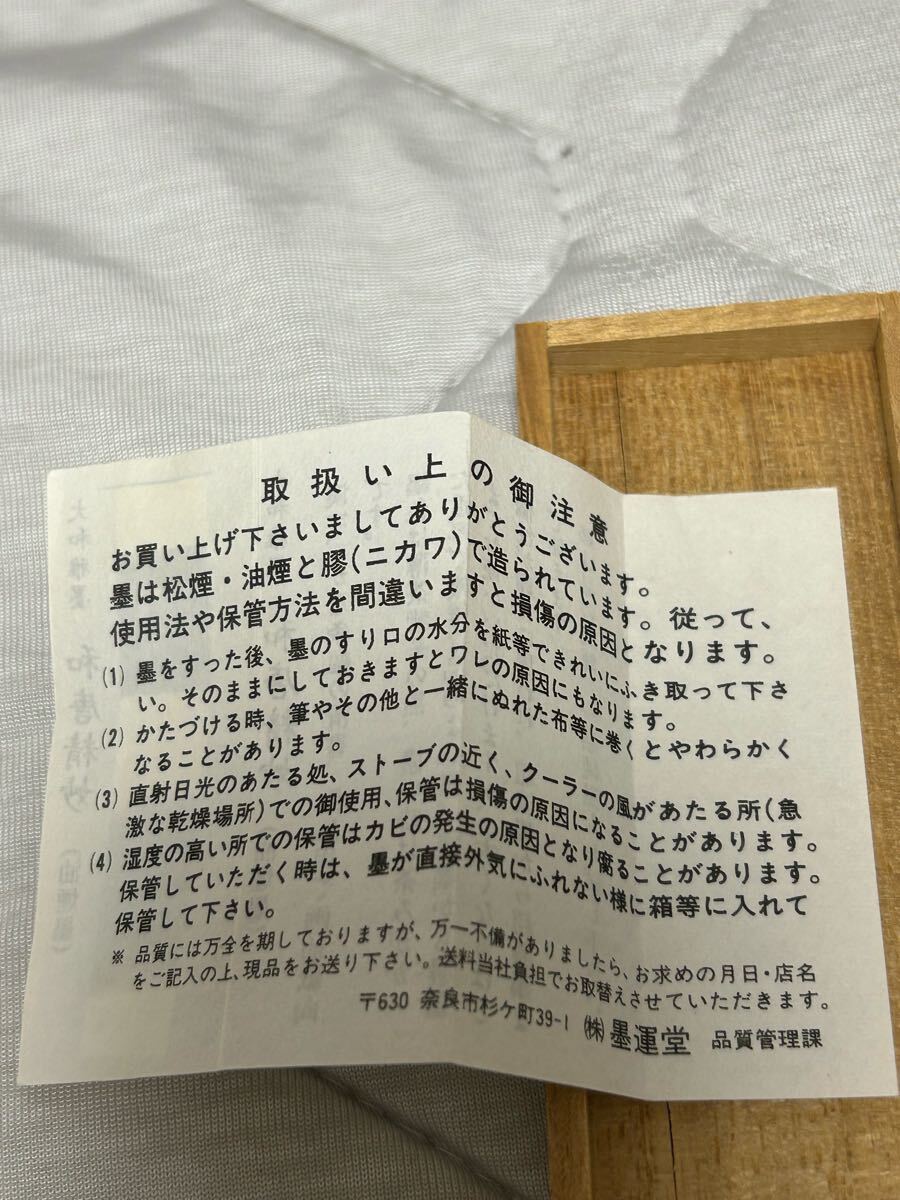 取扱い上の御注意
お買い上げ下さいましてありがとうございます。
墨は松煙・油煙と膠(ニカワ)で造られています。従って、
使用法や保管方法を間違いますと損傷の原因となります。
(1) 墨をすった後、墨のすり口の水分を紙等できれいにふき取って下さ
い。そのままにしておきますとワレの原因にもなります。
(2) かたづける時、筆やその他と一緒にぬれた布等に巻くとやわらかく
なることがあります。
(3) 直射日光のあたる処、ストーブの近く、クーラーの風があたる所(急
激な乾燥場所)での御使用、保管は損傷の原因になることがあります。
(4) 湿度の高い所での保管はカビの発生の原因となり腐ることがあります。
保管していただく時は、墨が直接外気にふれない様に箱等に入れて
保管して下さい。
※ 品質には万全を期しておりますが、万一不備がありましたら、お求めの月日・店名
をご記入の上、現品をお送り下さい。送料当社負担でお取替えさせていただきます。
〒630 奈良市杉ケ町39-1 ㈱墨運堂 品質管理課